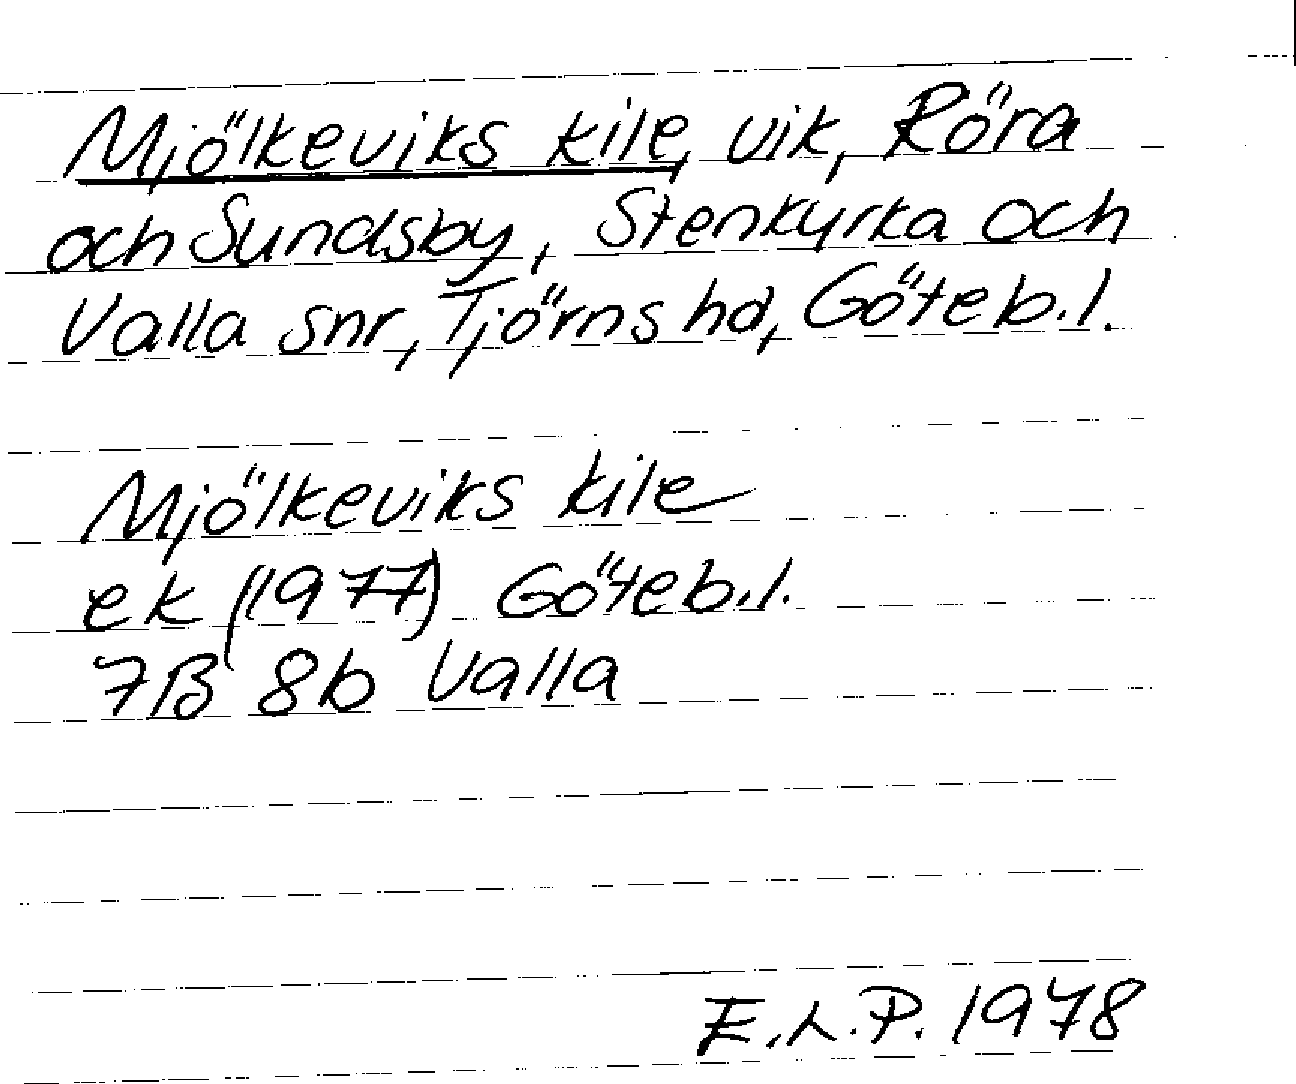 Mjölkeviks kile, vik, Röra
och Sundsby, Stenkyrka och
Valla snr, Tjörns hd, Göteb.l.
Mjölkeviks kile
ek (1977) Göteb.l.
7B 8b Valla
E.L.P. 1978